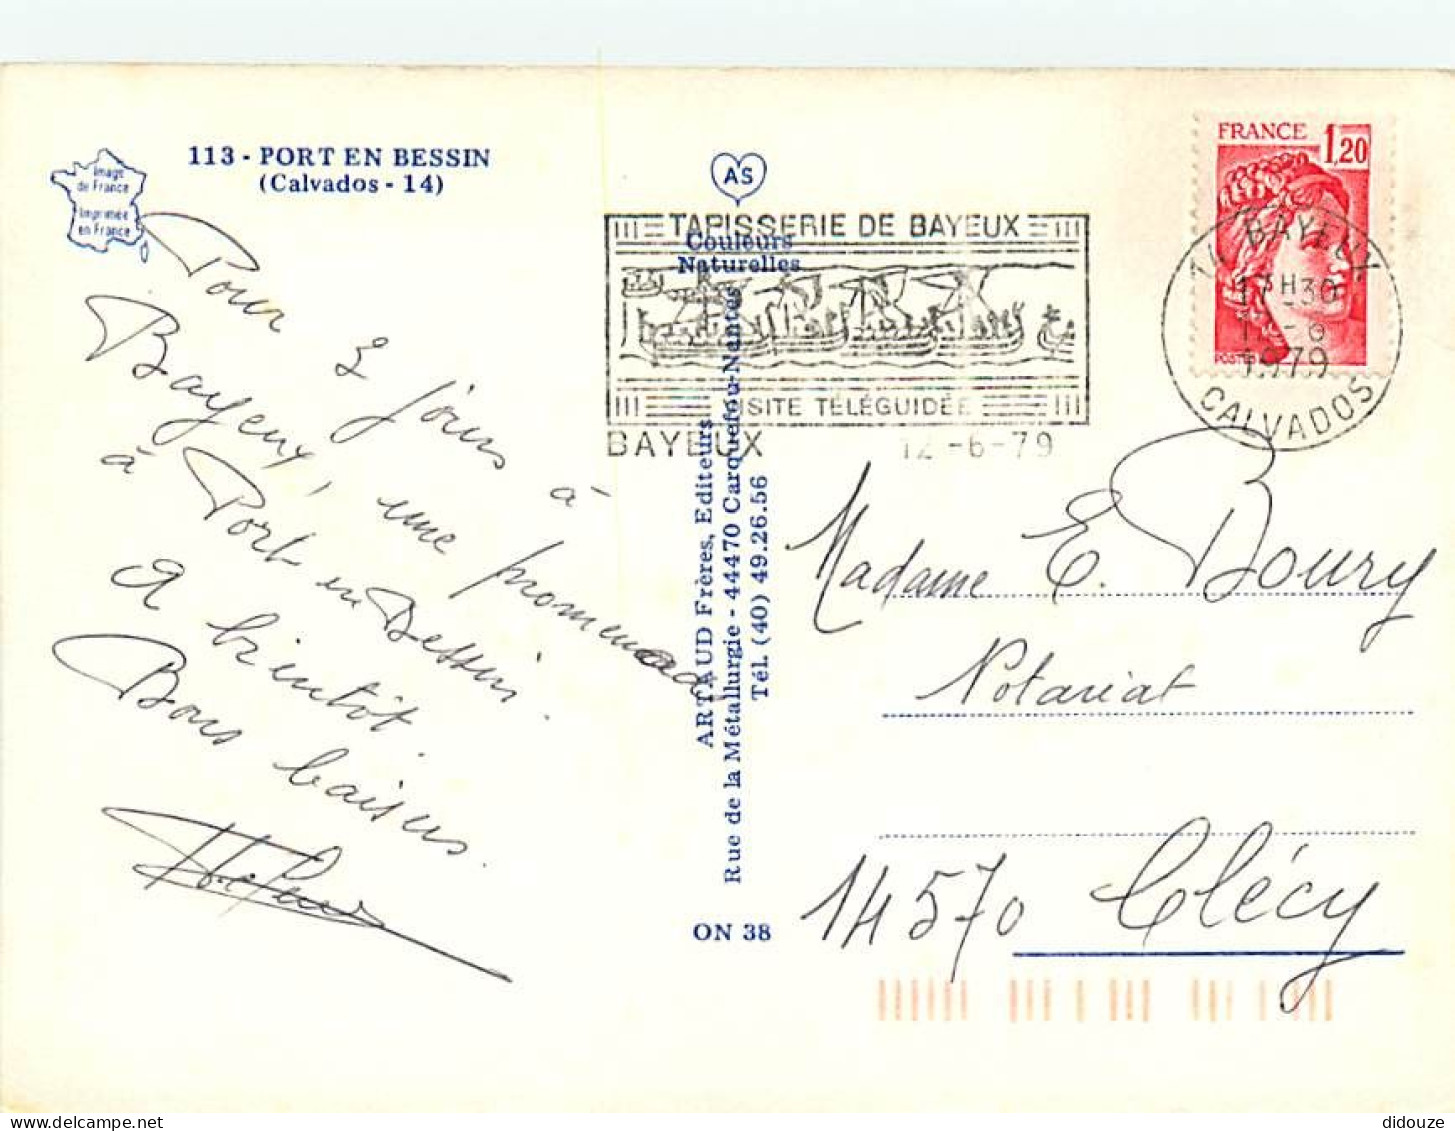 113 - PORT EN BESSIN
(Calvados - 14)
Image
de France
Imprimée
en France
Pour 3 jours à
Bayeux, une promenade
à Port en Bessin.
A bientôt.
Bons baisers.
AS
Couleurs
Naturelles
ARTAUD Frères, Editeurs
Rue de la Métallurgie - 44470 Carquefou-Nantes
Tél. (40) 49.26.56
ON 38
TAPISSERIE DE BAYEUX
VISITE TÉLÉGUIDÉE
BAYEUX 12-6-79
FRANCE 1,20
14 BAYEUX
17H30
12-6
1979
CALVADOS
Madame E. Boury
Notariat
14570 Clécy
didouze